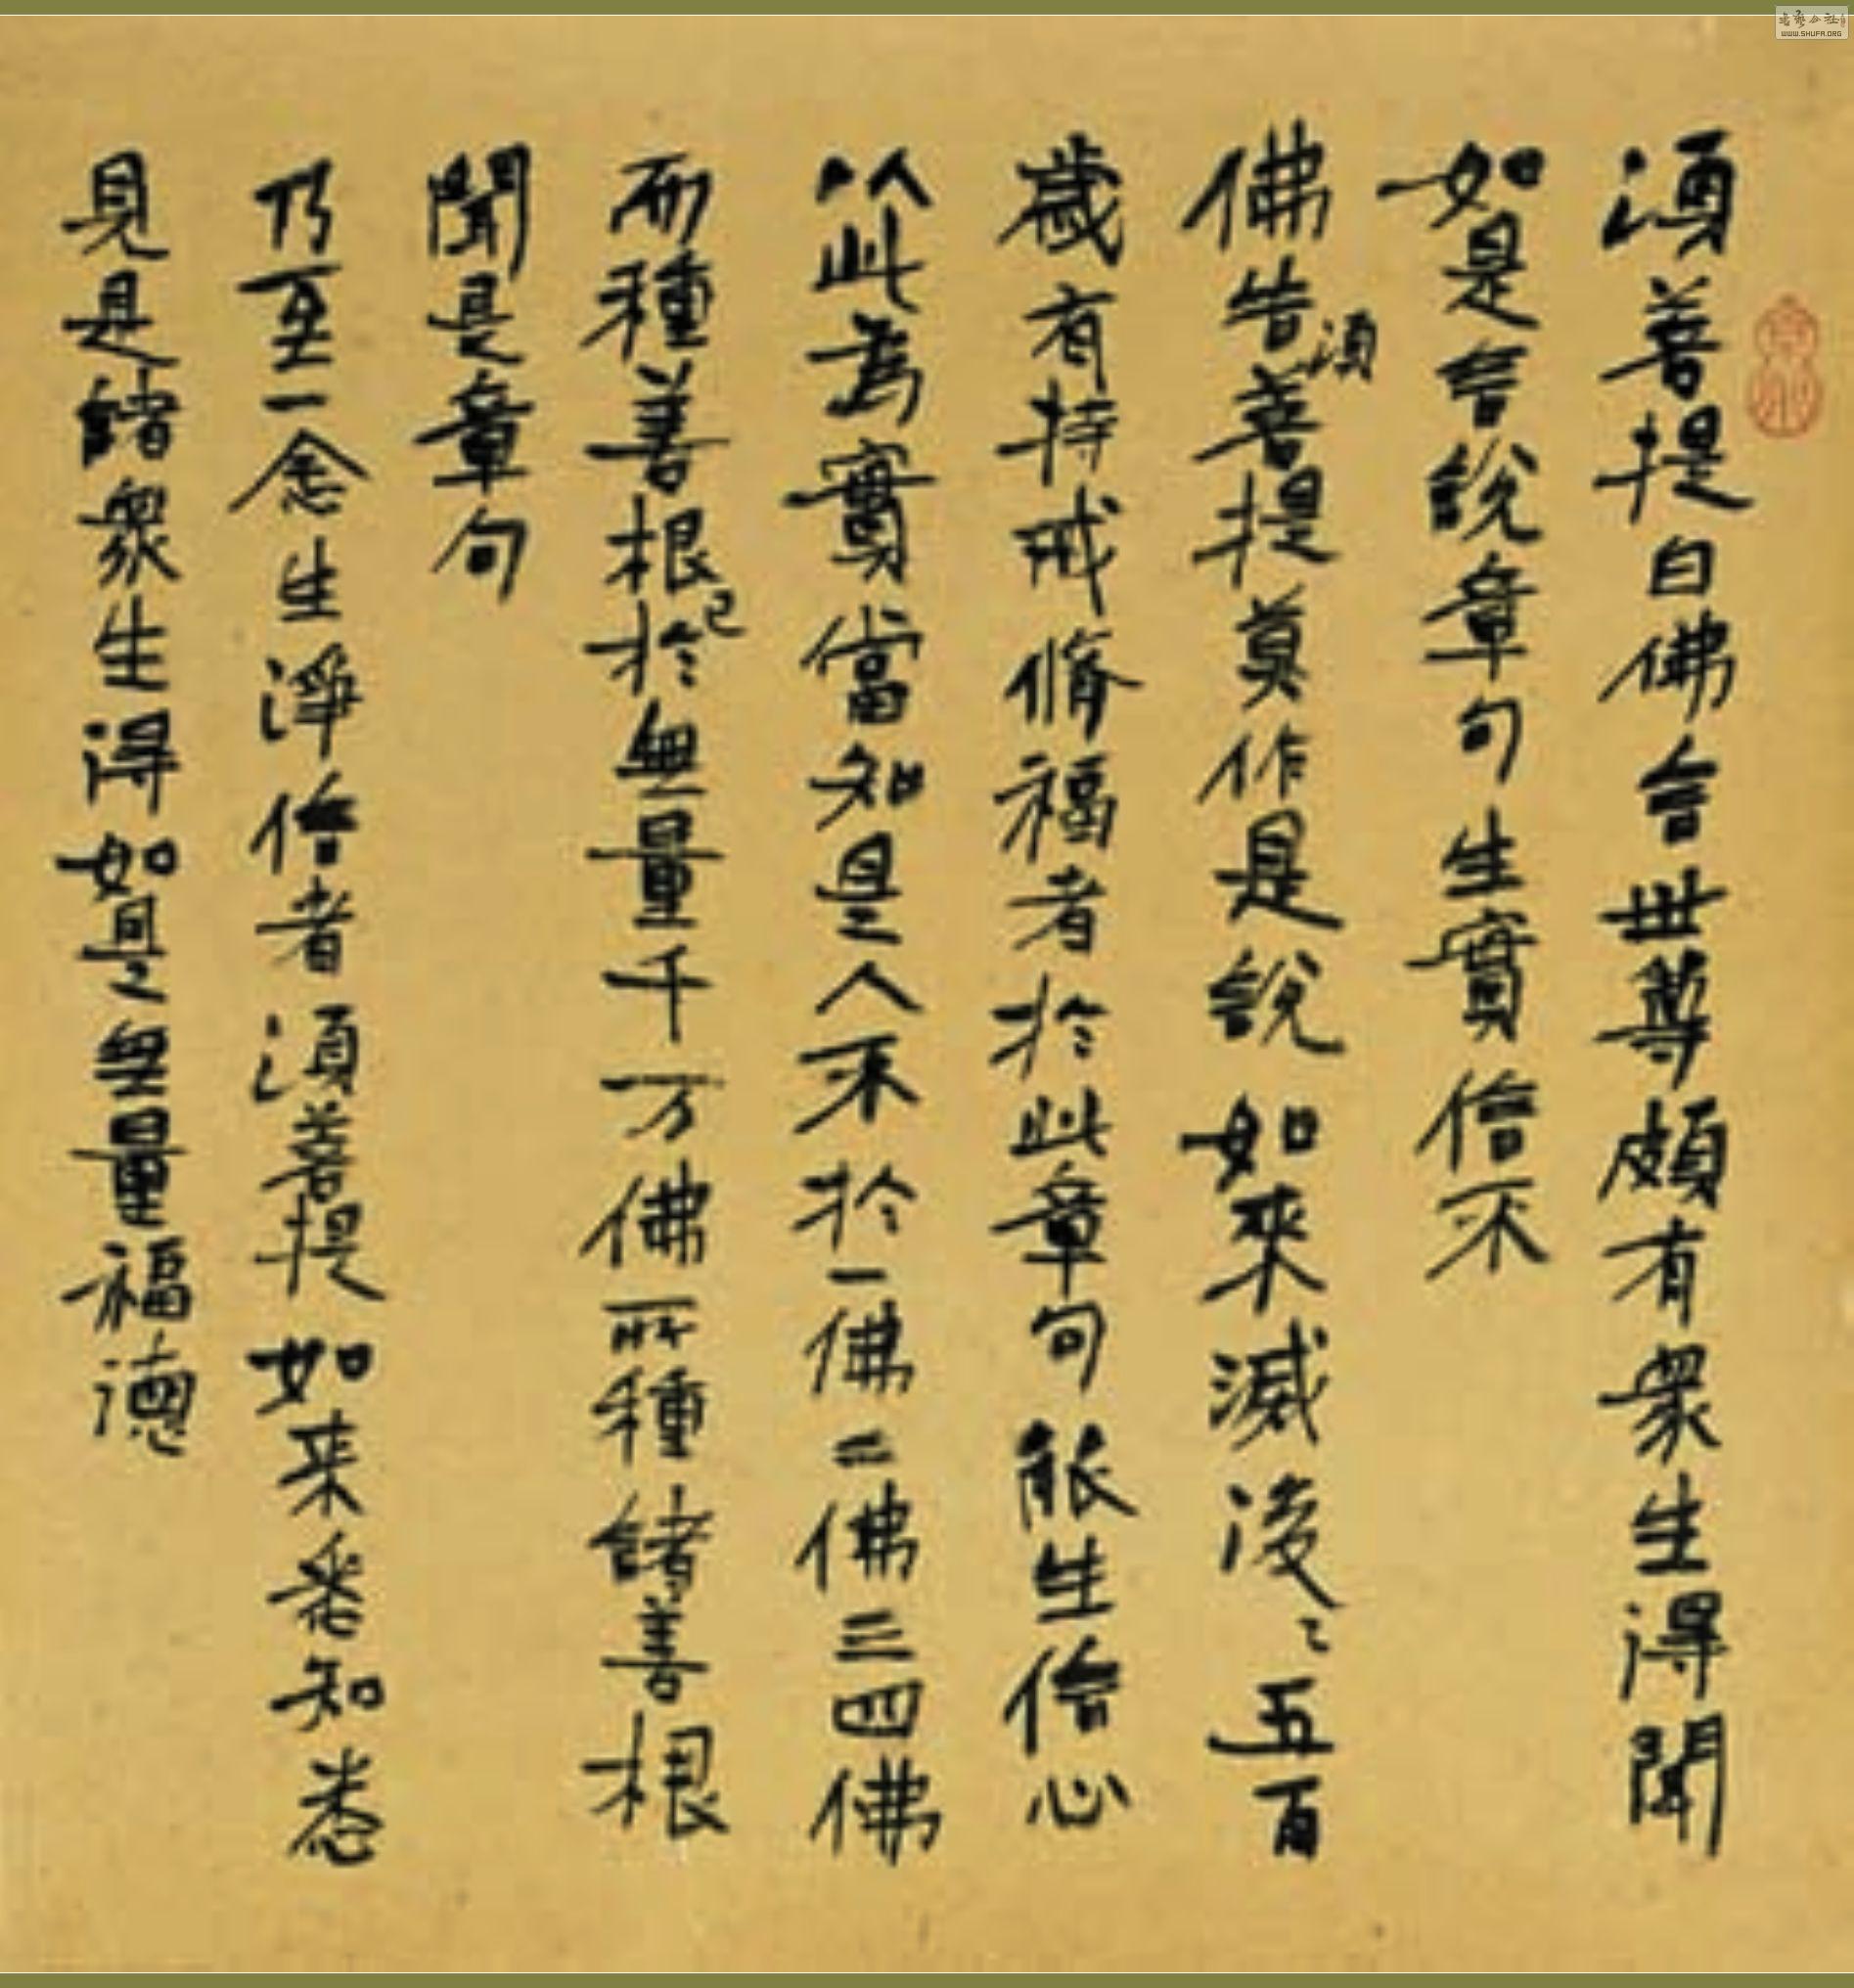 須菩提白佛言世尊頗有衆生得聞
如是言說章句生實信不
佛告須菩提莫作是說如來滅後後五百
歲有持戒脩福者於此章句能生信心
以此為實當知是人不於一佛二佛三四佛
而種善根已於無量千万佛所種諸善根
聞是章句
乃至一念生淨信者須菩提如来悉知悉
見是諸衆生得如是無量福德
WWW.SHUFA.ORG